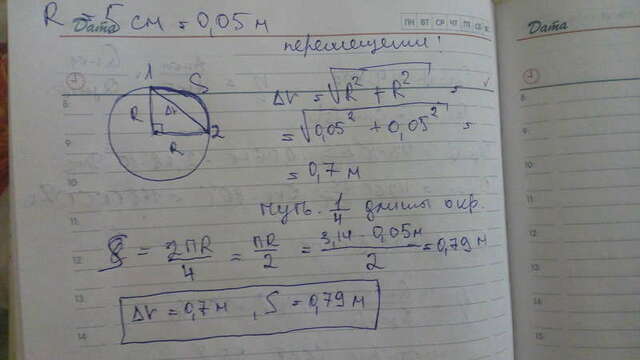 R = 5 см = 0,05 м
Дата
ПН ВТ СР ЧТ ПТ СБ
Дата
перемещении!
1
S
R
Δr
R
2
Δr = √R² + R² =
= √0,05² + 0,05² =
= 0,7 м
путь. 1/4 длины окр.
S = 2ПR/4 = ПR/2 = 3,14 · 0,05м/2 = 0,79 м
Δr = 0,7 м , S = 0,79 м
8
9
10
11
12
13
14
12
13
14
15